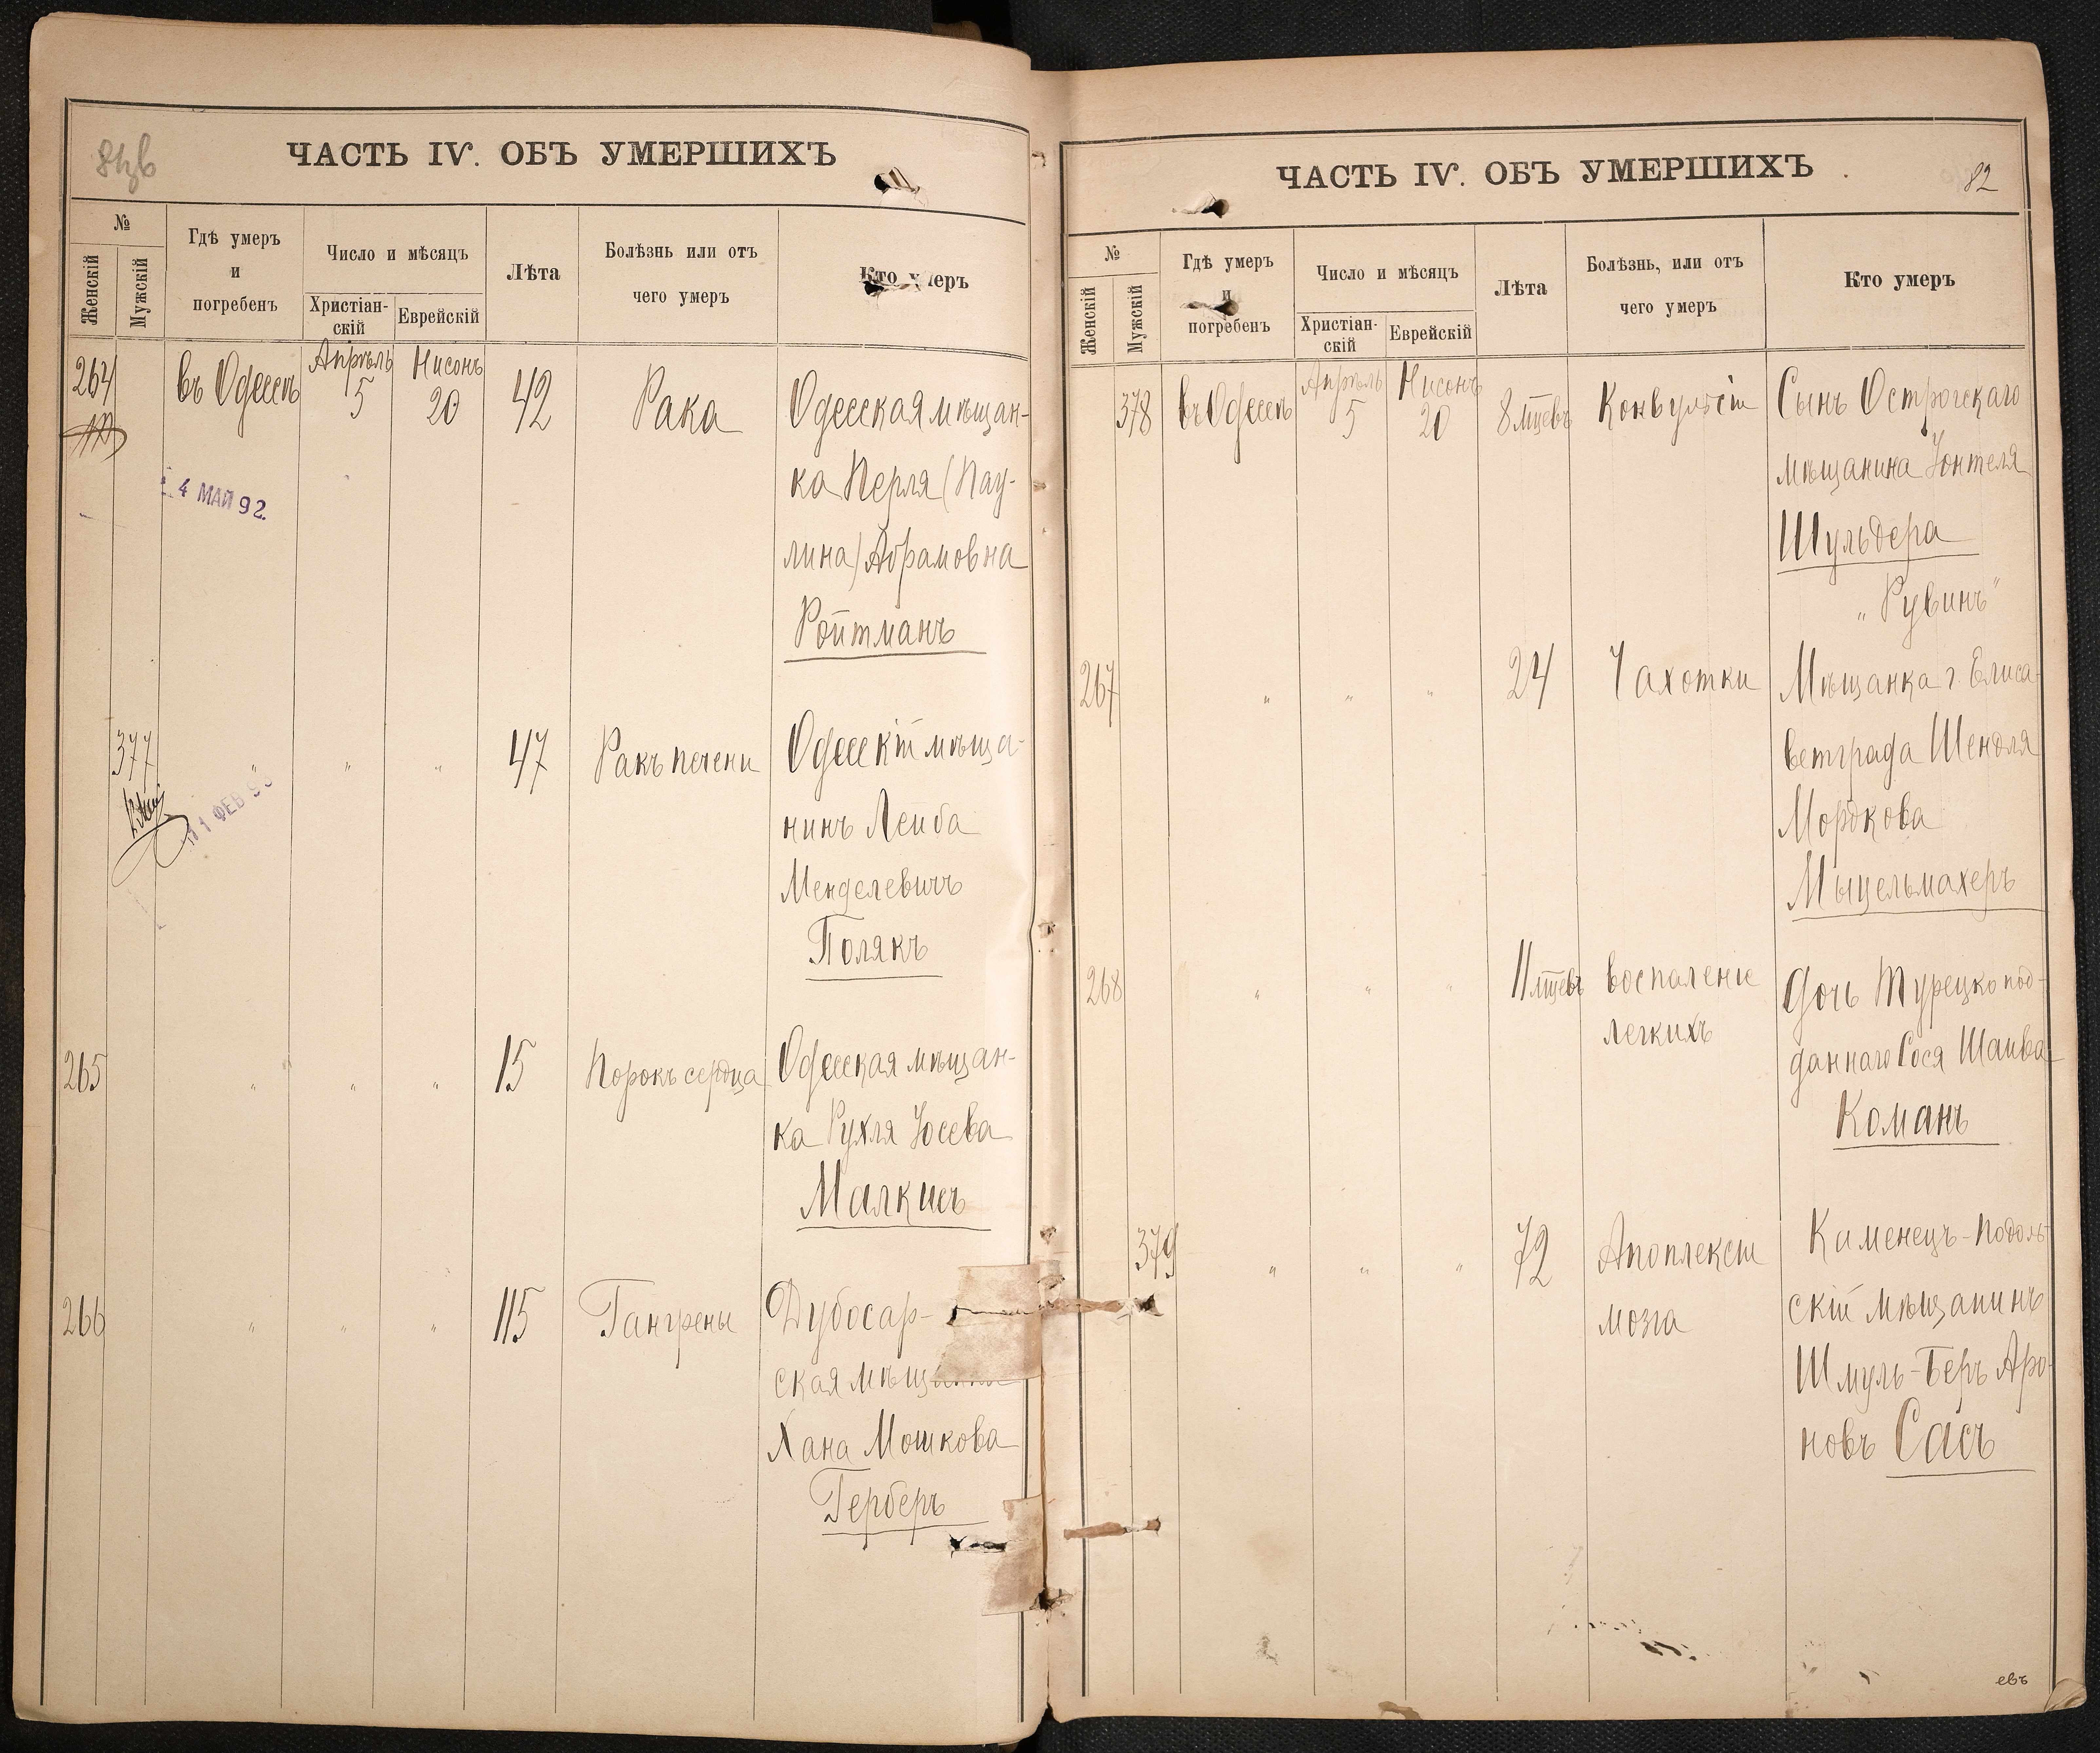 ЧАСТЬ IV. ОБЪ УМЕРШИХЪ
№
Женскій
Мужскій
Гдѣ умеръ
и
погребенъ
Число и мѣсяцъ
Христіан-
скій
Еврейскій
Лѣта
Болѣзнь или отъ
чего умеръ
Кто умеръ
264 въ Одессѣ Апрѣль 5 Нисонъ 20 42 Рака Одесская мѣщан-
ка Перля (Пау-
4 МАЙ 92.
лина) Абрамовна
Ройтманъ
377 " " " 47 Ракъ печени Одесскій мѣща-
11 ФЕВ 9
нинъ Лейба
Менделевичъ
Полякъ
265 " " " 15 Порокъ сердца Одесская мѣщан-
ка Рухля Іосева
Малкисъ
266 " " " 115 Гангрены Дубосар-
ская
Хана Мошкова
Герберъ
ЧАСТЬ IV. ОБЪ УМЕРШИХЪ
82
№
Женскій
Мужскій
Гдѣ умеръ
и
погребенъ
Число и мѣсяцъ
Христіан-
скій
Еврейскій
Лѣта
Болѣзнь, или отъ
чего умеръ
Кто умеръ
378 въ Одессѣ Апрѣль 5 Нисонъ 20 8 мцевъ Конвульсіи Сынъ Острогскаго
мѣщанина Іонтеля
Шульдера
„Рувинъ"
267 " " " 24 Чахотки Мѣщанка г. Елиса-
ветграда Шендля
Мордкова
Мыцельмахеръ
268 " " " 11 мцевъ воспаленіе легкихъ Дочь Турецко под-
даннаго Сося Шаива
Команъ
379 " " " 72 Апоплексіи мозга Каменецъ-Подоль-
скій мѣщанинъ
Шмуль-Беръ Аро-
новъ Сасъ
евъ